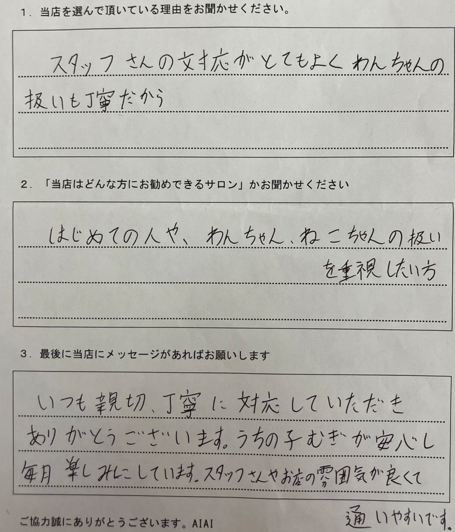 1．当店を選んで頂いている理由をお聞かせください。
スタッフさんの対応がとてもよく わんちゃんの
扱いも丁寧だから
2．「当店はどんな方にお勧めできるサロン」かお聞かせください
はじめての人や、わんちゃん、ねこちゃんの扱い
を重視したい方
3．最後に当店にメッセージがあればお願いします
いつも親切、丁寧に対応していただき
ありがとうございます。うちの子むぎが安心し
毎月楽しみにしています。スタッフさんやお店の雰囲気が良くて
通いやすいです。
ご協力誠にありがとうございます。AIAI